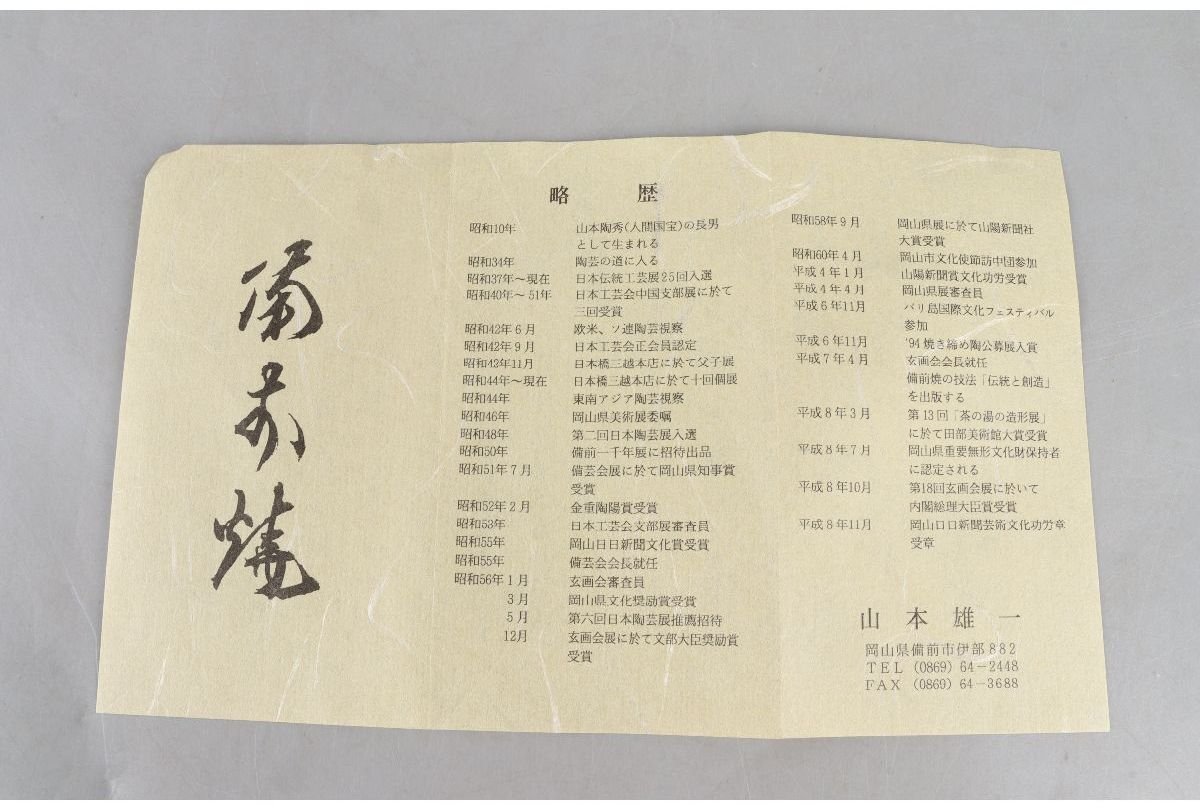 備前焼
略歴
昭和10年 山本陶秀(人間国宝)の長男
として生まれる
昭和34年 陶芸の道に入る
昭和37年～現在 日本伝統工芸展25回入選
昭和40年～51年 日本工芸会中国支部展に於て
三回受賞
昭和42年6月 欧米、ソ連陶芸視察
昭和42年9月 日本工芸会正会員認定
昭和42年11月 日本橋三越本店に於て父子展
昭和44年～現在 日本橋三越本店に於て十回個展
昭和44年 東南アジア陶芸視察
昭和46年 岡山県美術展委嘱
昭和48年 第二回日本陶芸展入選
昭和50年 備前一千年展に招待出品
昭和51年7月 備芸会展に於て岡山県知事賞
受賞
昭和52年2月 金重陶陽賞受賞
昭和53年 日本工芸会支部展審査員
昭和55年 岡山日日新聞文化賞受賞
昭和55年 備芸会会長就任
昭和56年1月 玄画会審査員
3月 岡山県文化奨励賞受賞
5月 第六回日本陶芸展推薦招待
12月 玄画会展に於て文部大臣奨励賞
受賞
昭和58年9月 岡山県展に於て山陽新聞社
大賞受賞
昭和60年4月 岡山市文化使節訪中団参加
平成4年1月 山陽新聞賞文化功労受賞
平成4年4月 岡山県展審査員
平成6年11月 バリ島国際文化フェスティバル
参加
平成6年11月 '94焼き締め陶公募展入賞
平成7年4月 玄画会会長就任
備前焼の技法「伝統と創造」
を出版する
平成8年3月 第13回「茶の湯の造形展」
に於て田部美術館大賞受賞
平成8年7月 岡山県重要無形文化財保持者
に認定される
平成8年10月 第18回玄画会展に於いて
内閣総理大臣賞受賞
平成8年11月 岡山日日新聞芸術文化功労章
受章
山本雄一
岡山県備前市伊部882
TEL (0869) 64-2448
FAX (0869) 64-3688